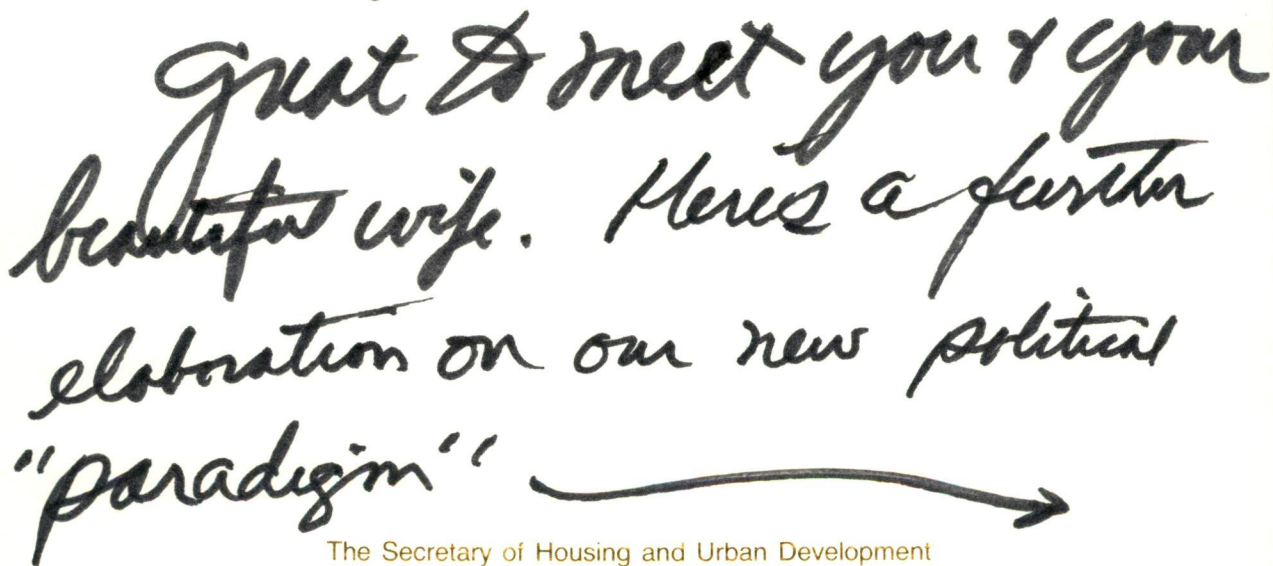 Great to meet you & your
beautiful wife. Here's a further
elaboration on our new political
"paradigm"
The Secretary of Housing and Urban Development